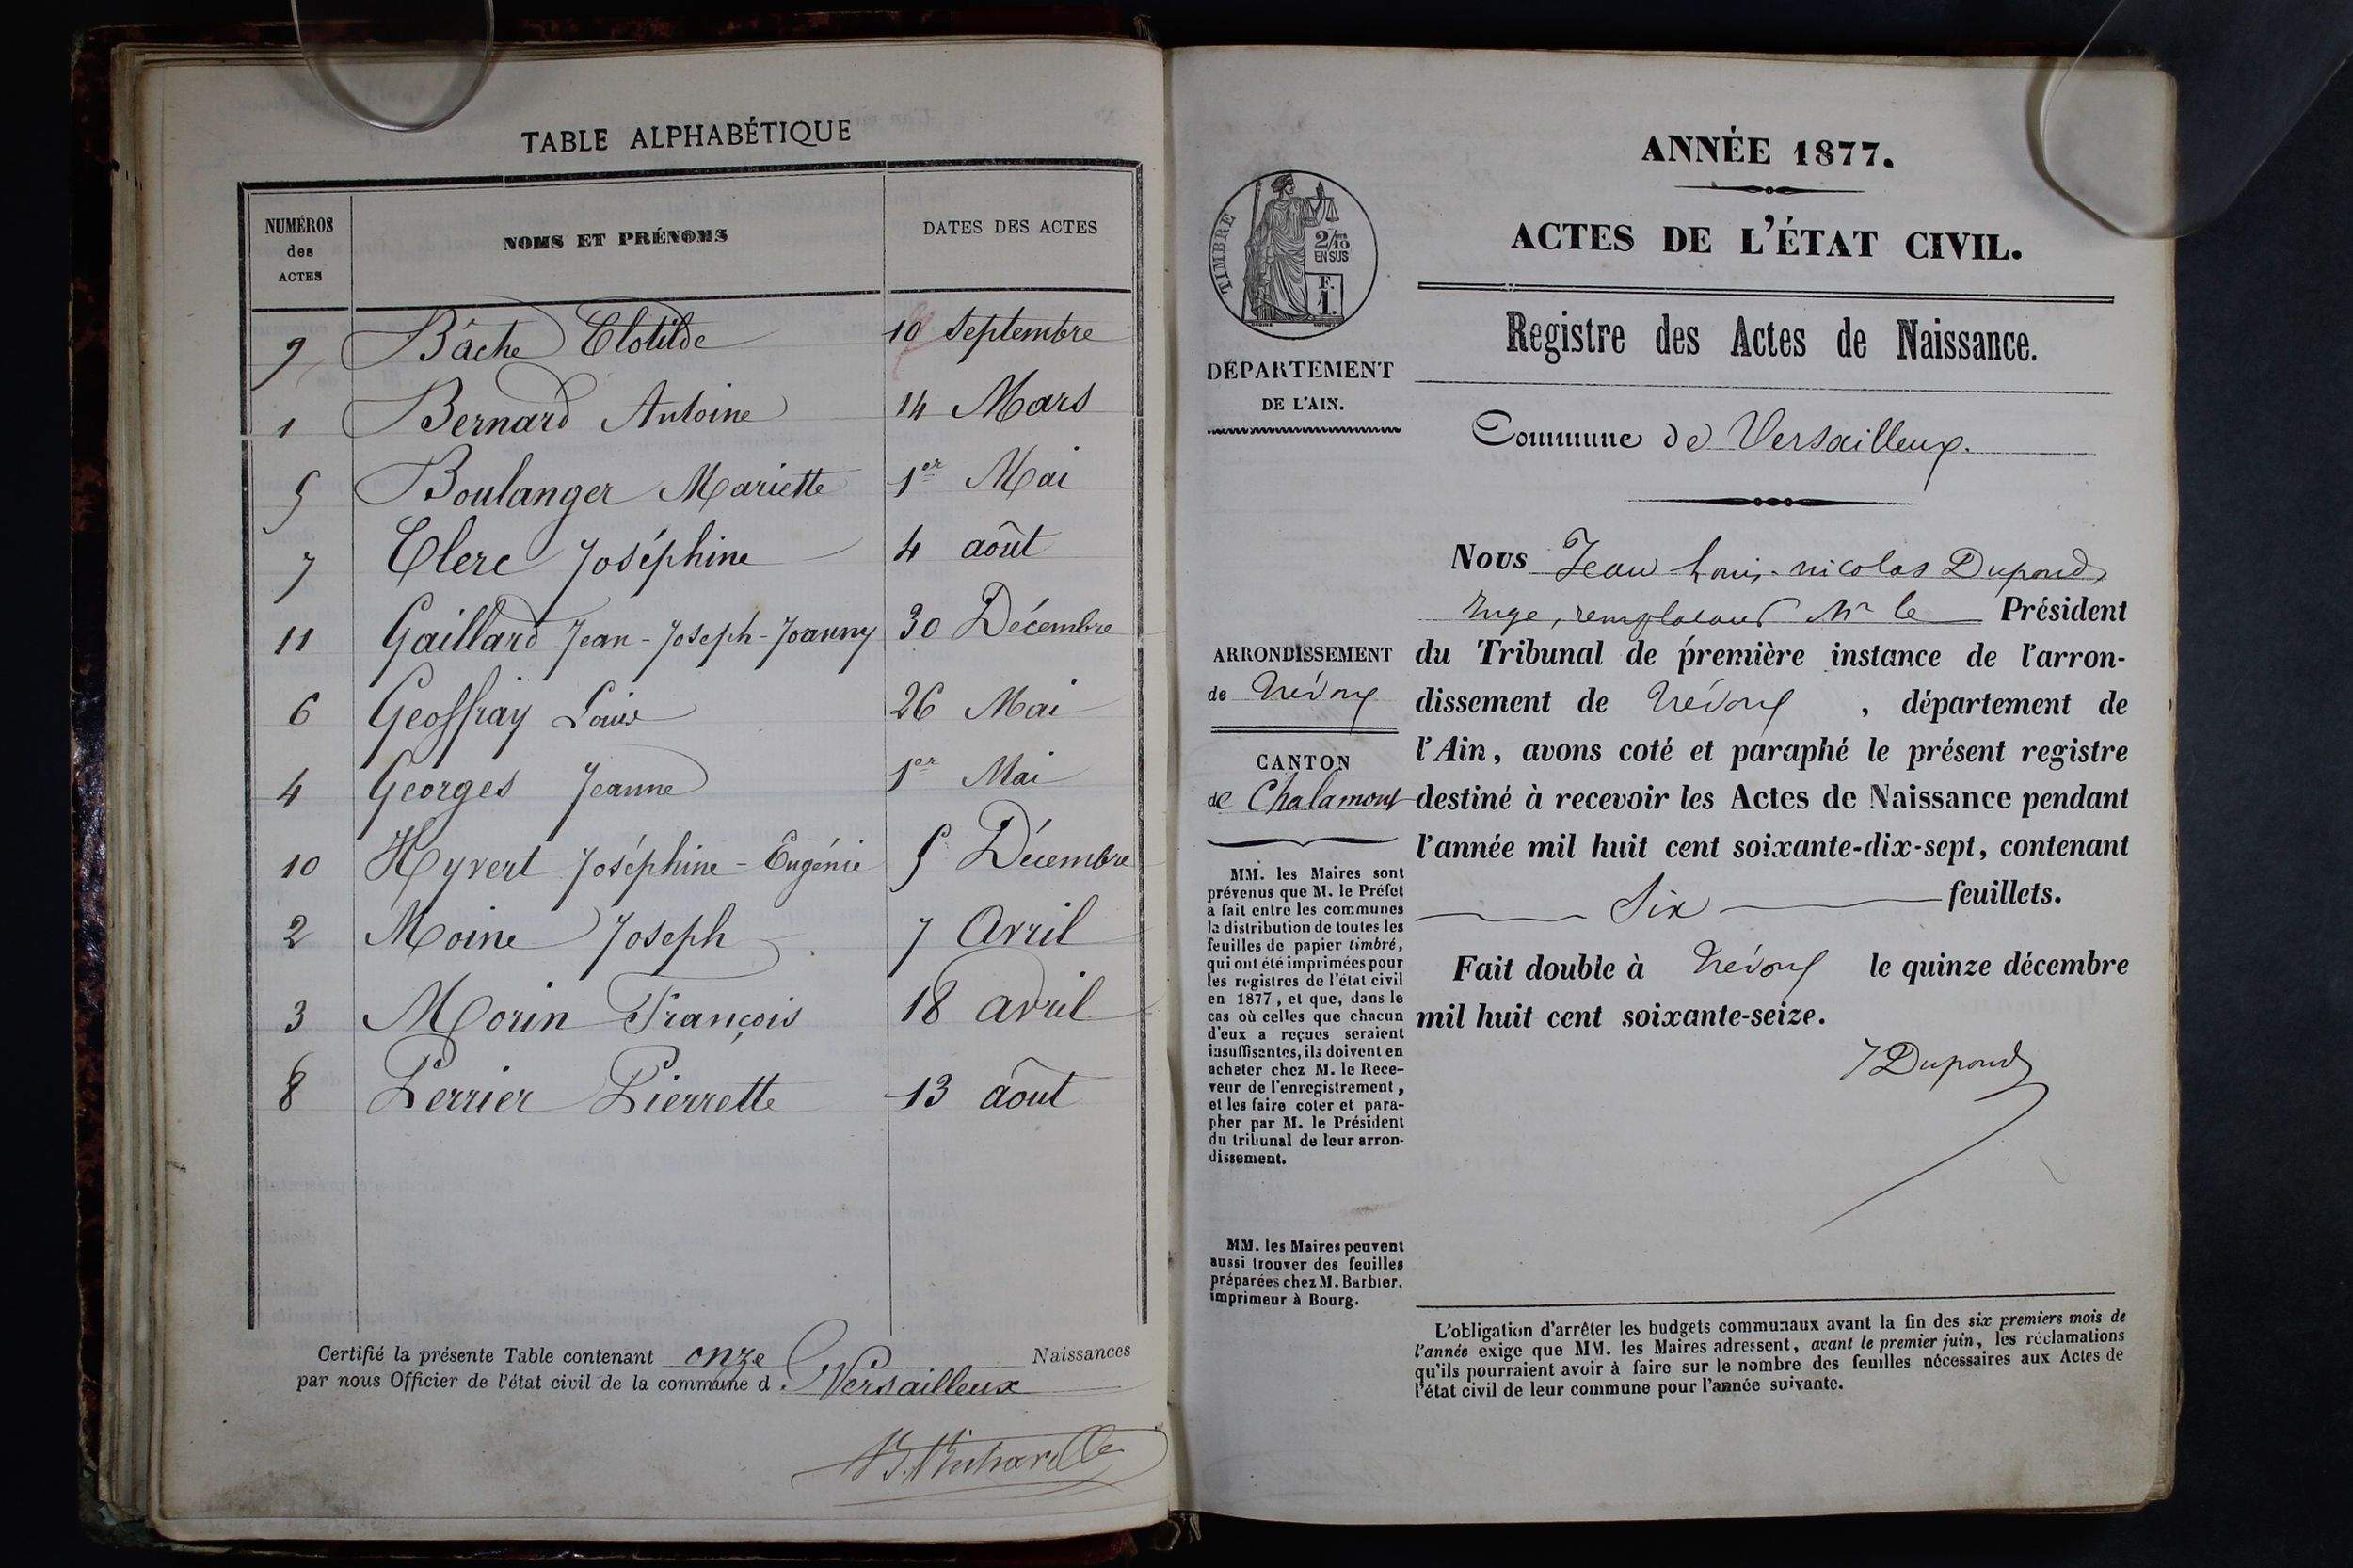 TABLE ALPHABÉTIQUE
NUMÉROS
des
ACTES
NOMS ET PRÉNOMS
DATES DES ACTES
9 Bâche Clotilde 10 septembre
1 Bernard Antoine 14 Mars
5 Boulanger Mariette 1er Mai
7 Clerc Joséphine 4 août
11 Gaillard Jean-Joseph-Joanny 30 Décembre
6 Geoffray Louis 26 Mai
4 Georges Jeanne 1er Mai
10 Hyvert Joséphine-Eugénie 5 Décembre
2 Moine Joseph 7 Avril
3 Morin François 18 avril
8 Perrier Pierrette 13 août
Certifié la présente Table contenant onze Naissances
par nous Officier de l'état civil de la commune d Versailleux
TIMBRE
2/10
EN SUS
F.
1.
DÉPARTEMENT
DE L'AIN.
ARRONDISSEMENT
de Trévoux
CANTON
de Chalamont
MM. les Maires sont
prévenus que M. le Préfet
a fait entre les communes
la distribution de toutes les
feuilles de papier timbré,
qui ont été imprimées pour
les registres de l'état civil
en 1877, et que, dans le
cas où celles que chacun
d'eux a reçues seraient
insuffisantes, ils doivent en
acheter chez M. le Rece-
veur de l'enregistrement,
et les faire coter et para-
pher par M. le Président
du tribunal de leur arron-
dissement.
MM. les Maires peuvent
aussi trouver des feuilles
préparées chez M. Barbier,
imprimeur à Bourg.
ANNÉE 1877.
ACTES DE L'ÉTAT CIVIL.
Registre des Actes de Naissance.
Commune de Versailleux.
Nous Jean Louis-nicolas Dupond,
Juge, remplaçant Mr le Président
du Tribunal de première instance de l'arron-
dissement de Trévoux, département de
l'Ain, avons coté et paraphé le présent registre
destiné à recevoir les Actes de Naissance pendant
l'année mil huit cent soixante-dix-sept, contenant
Six feuillets.
Fait double à Trévoux le quinze décembre
mil huit cent soixante-seize.
Dupond
L'obligation d'arrêter les budgets communaux avant la fin des six premiers mois de
l'année exige que MM. les Maires adressent, avant le premier juin, les réclamations
qu'ils pourraient avoir à faire sur le nombre des feuilles nécessaires aux Actes de
l'état civil de leur commune pour l'année suivante.